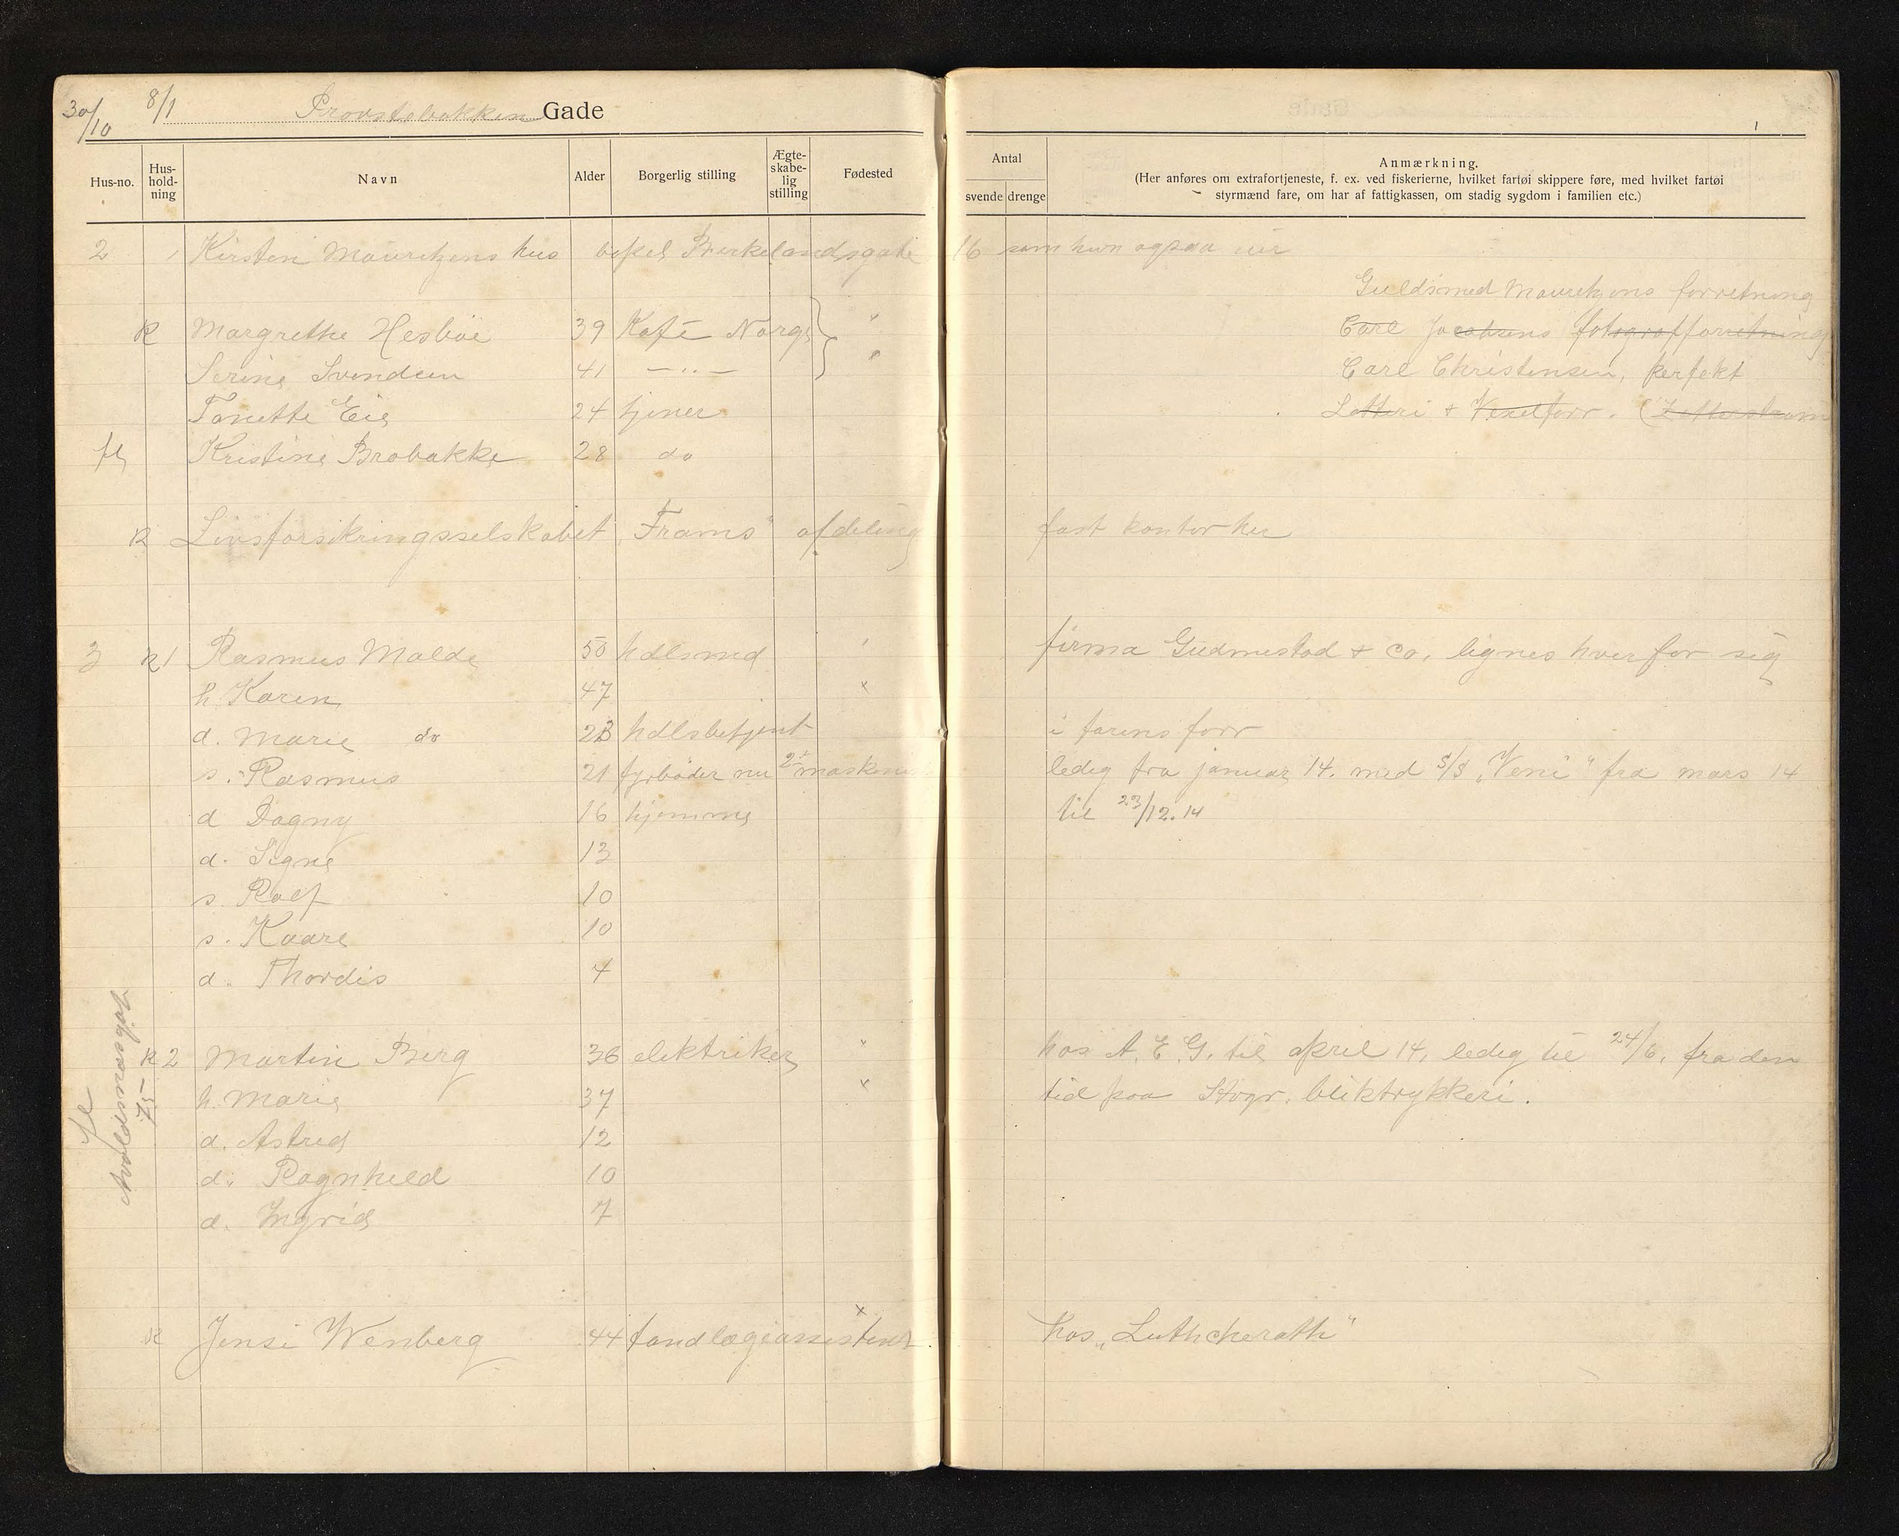 30/10 8/1 Provstebakken Gade
Hus-no. Hus-hold-ning Navn Alder Borgerlig stilling Ægte-skabe-lig stilling Fødested
Antal
svende drenge
Anmærkning.
(Her anføres om extrafortjeneste, f. ex. ved fiskerierne, hvilket fartøi skippere føre, med hvilket fartøi
styrmænd fare, om har af fattigkassen, om stadig sygdom i familien etc.)
2 Kirsten Mauritzens hus bopel Birkelandsgade 16 som hun ogsaa eier
Guldsmed Mauritzens forretning
R Margrethe Hesbøe 39 Kafé Norge " Carl Jacobsens fotografforretning
Serine Svendsen 41 —"— " Carl Christensen, perfekt
Tonette Eie 24 tjener Lotteri + Vexelforr. (Zetterstrøm
fl Kristine Brobakke 28 do
R Livsforsikringsselskabet „Frams" afdeling fast kontor her
3 R 1 Rasmus Malde 50 hdlsmd ' firma Gudmestad + co, lignes hver for sig
h. Karen 47 x
d. Marie do 23 hdlsbetjent i farens forr
s. Rasmus 21 fyrbøder nu 2 maskinist ledig fra januar 14. med S/S „Veni" fra mars 14
d Dagny 16 hjemme til 23/12.14
d. Signe 13
s. Rolf 10
s. Kaare 10
d. Thordis 4
R 2 Martin Berg 36 elektriker " hos A. E. G. til april 14, ledig til 24/6, fra den
h. Marie 37 x tid paa Stvgr. bliktrykkeri.
d. Astrid 12
d. Ragnhild 10
d. Ingrid 7
fl Avaldsnesgat 75
R Jensi Wenberg 44 tandlægeassistent x hos